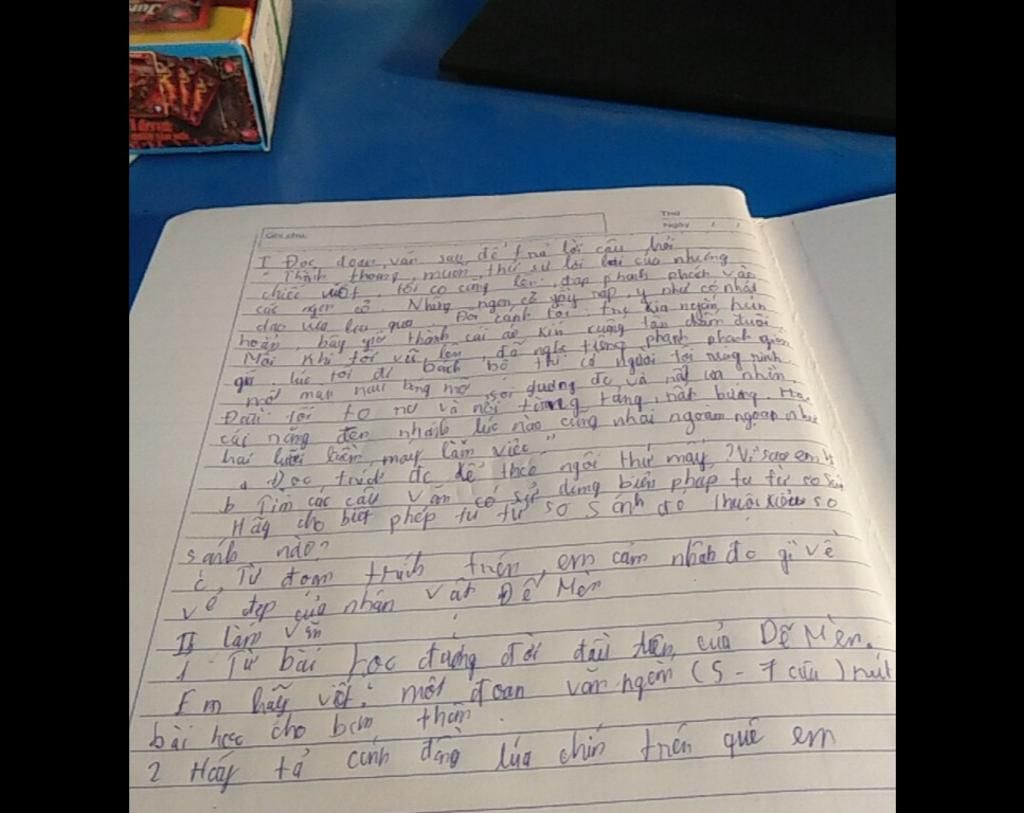 Thứ
Ngày / /
I Đọc đoạn văn sau để trả lời câu hỏi
"Thỉnh thoảng, muốn thử sự lợi hại của những
chiếc vuốt, tôi co cẳng lên, đạp phanh phách vào
các ngọn cỏ. Những ngọn cỏ gãy rạp, y như có nhát
dao vừa lia qua. Đôi cánh tôi, trc kia ngắn hủn
hoẳn, bây giờ thành cái áo kín xuống tận chấm đuôi.
Mỗi khi tôi vũ lên, đã nghe tiếng phành phạch giòn
giã. lúc tôi đi bách bộ thì cả người tôi rung rinh
một màu nâu bóng mỡ soi gương đc và rất ưa nhìn.
Đầu tôi to ra và nổi từng tảng, rất bướng. Hai
cái răng đen nhánh lúc nào cũng nhai ngoàm ngoạp như
hai lưỡi liềm máy làm việc"
a Đọc, trích đc kể theo ngôi thứ mấy? Vì sao em
b Tìm các câu văn có sử dụng biện pháp tu từ so sánh
Hãy cho biết phép tu từ so sánh đó thuộc kiểu so
sánh nào?
c, Từ đoạn trích trên, em cảm nhận đc gì về
vẻ đẹp của nhân vật Dế Mèn
II làm văn
1 Từ bài học đường đời đầu tiên của Dế Mèn.
Em hãy viết một đoạn văn ngắn (5 - 7 câu) rút
bài học cho bản thân.
2 Hãy tả cánh đồng lúa chín trên quê em